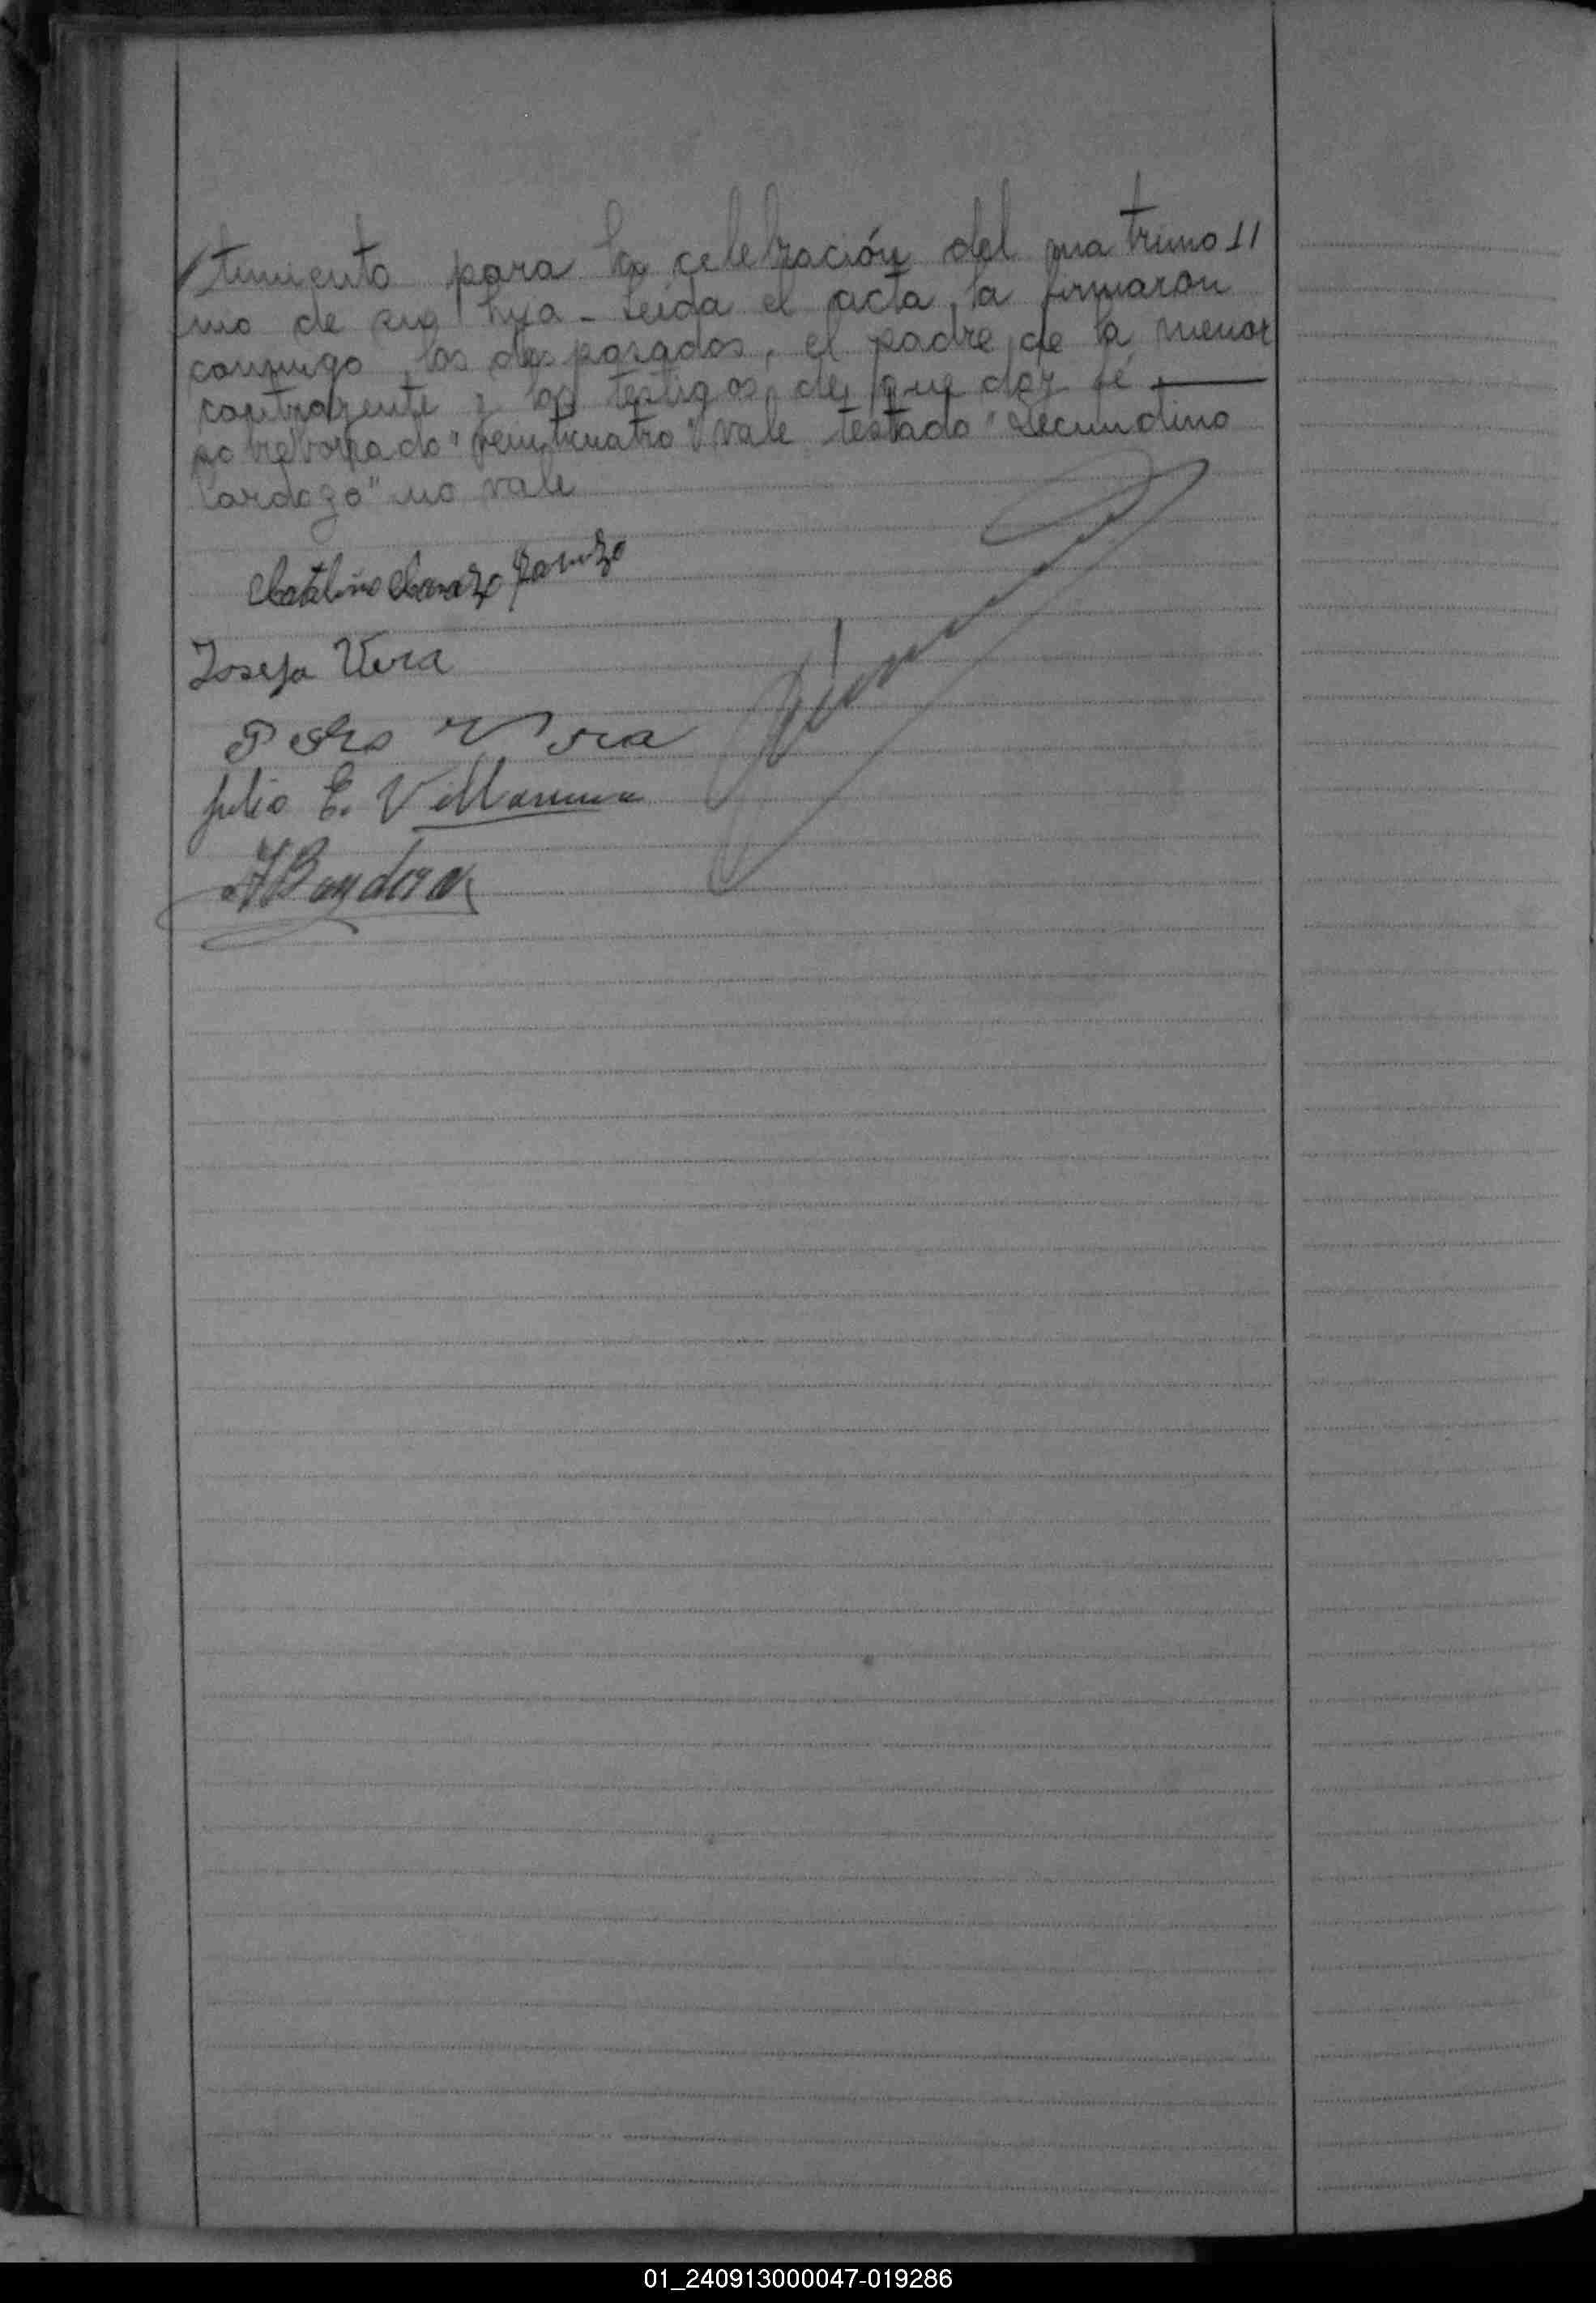 timiento para la celebración del matrimo //
nio de su hija - Leida el acta, la firmaron
conmigo, los desposados, el padre de la menor
contrayente y los testigos, de que doy fé.
sobreborrado "veinticuatro" vale testado "Secundino
Cardozo" no vale
Catalino
Josefa Vera
Pedro Vera
Julio E. Villa
01_240913000047-019286